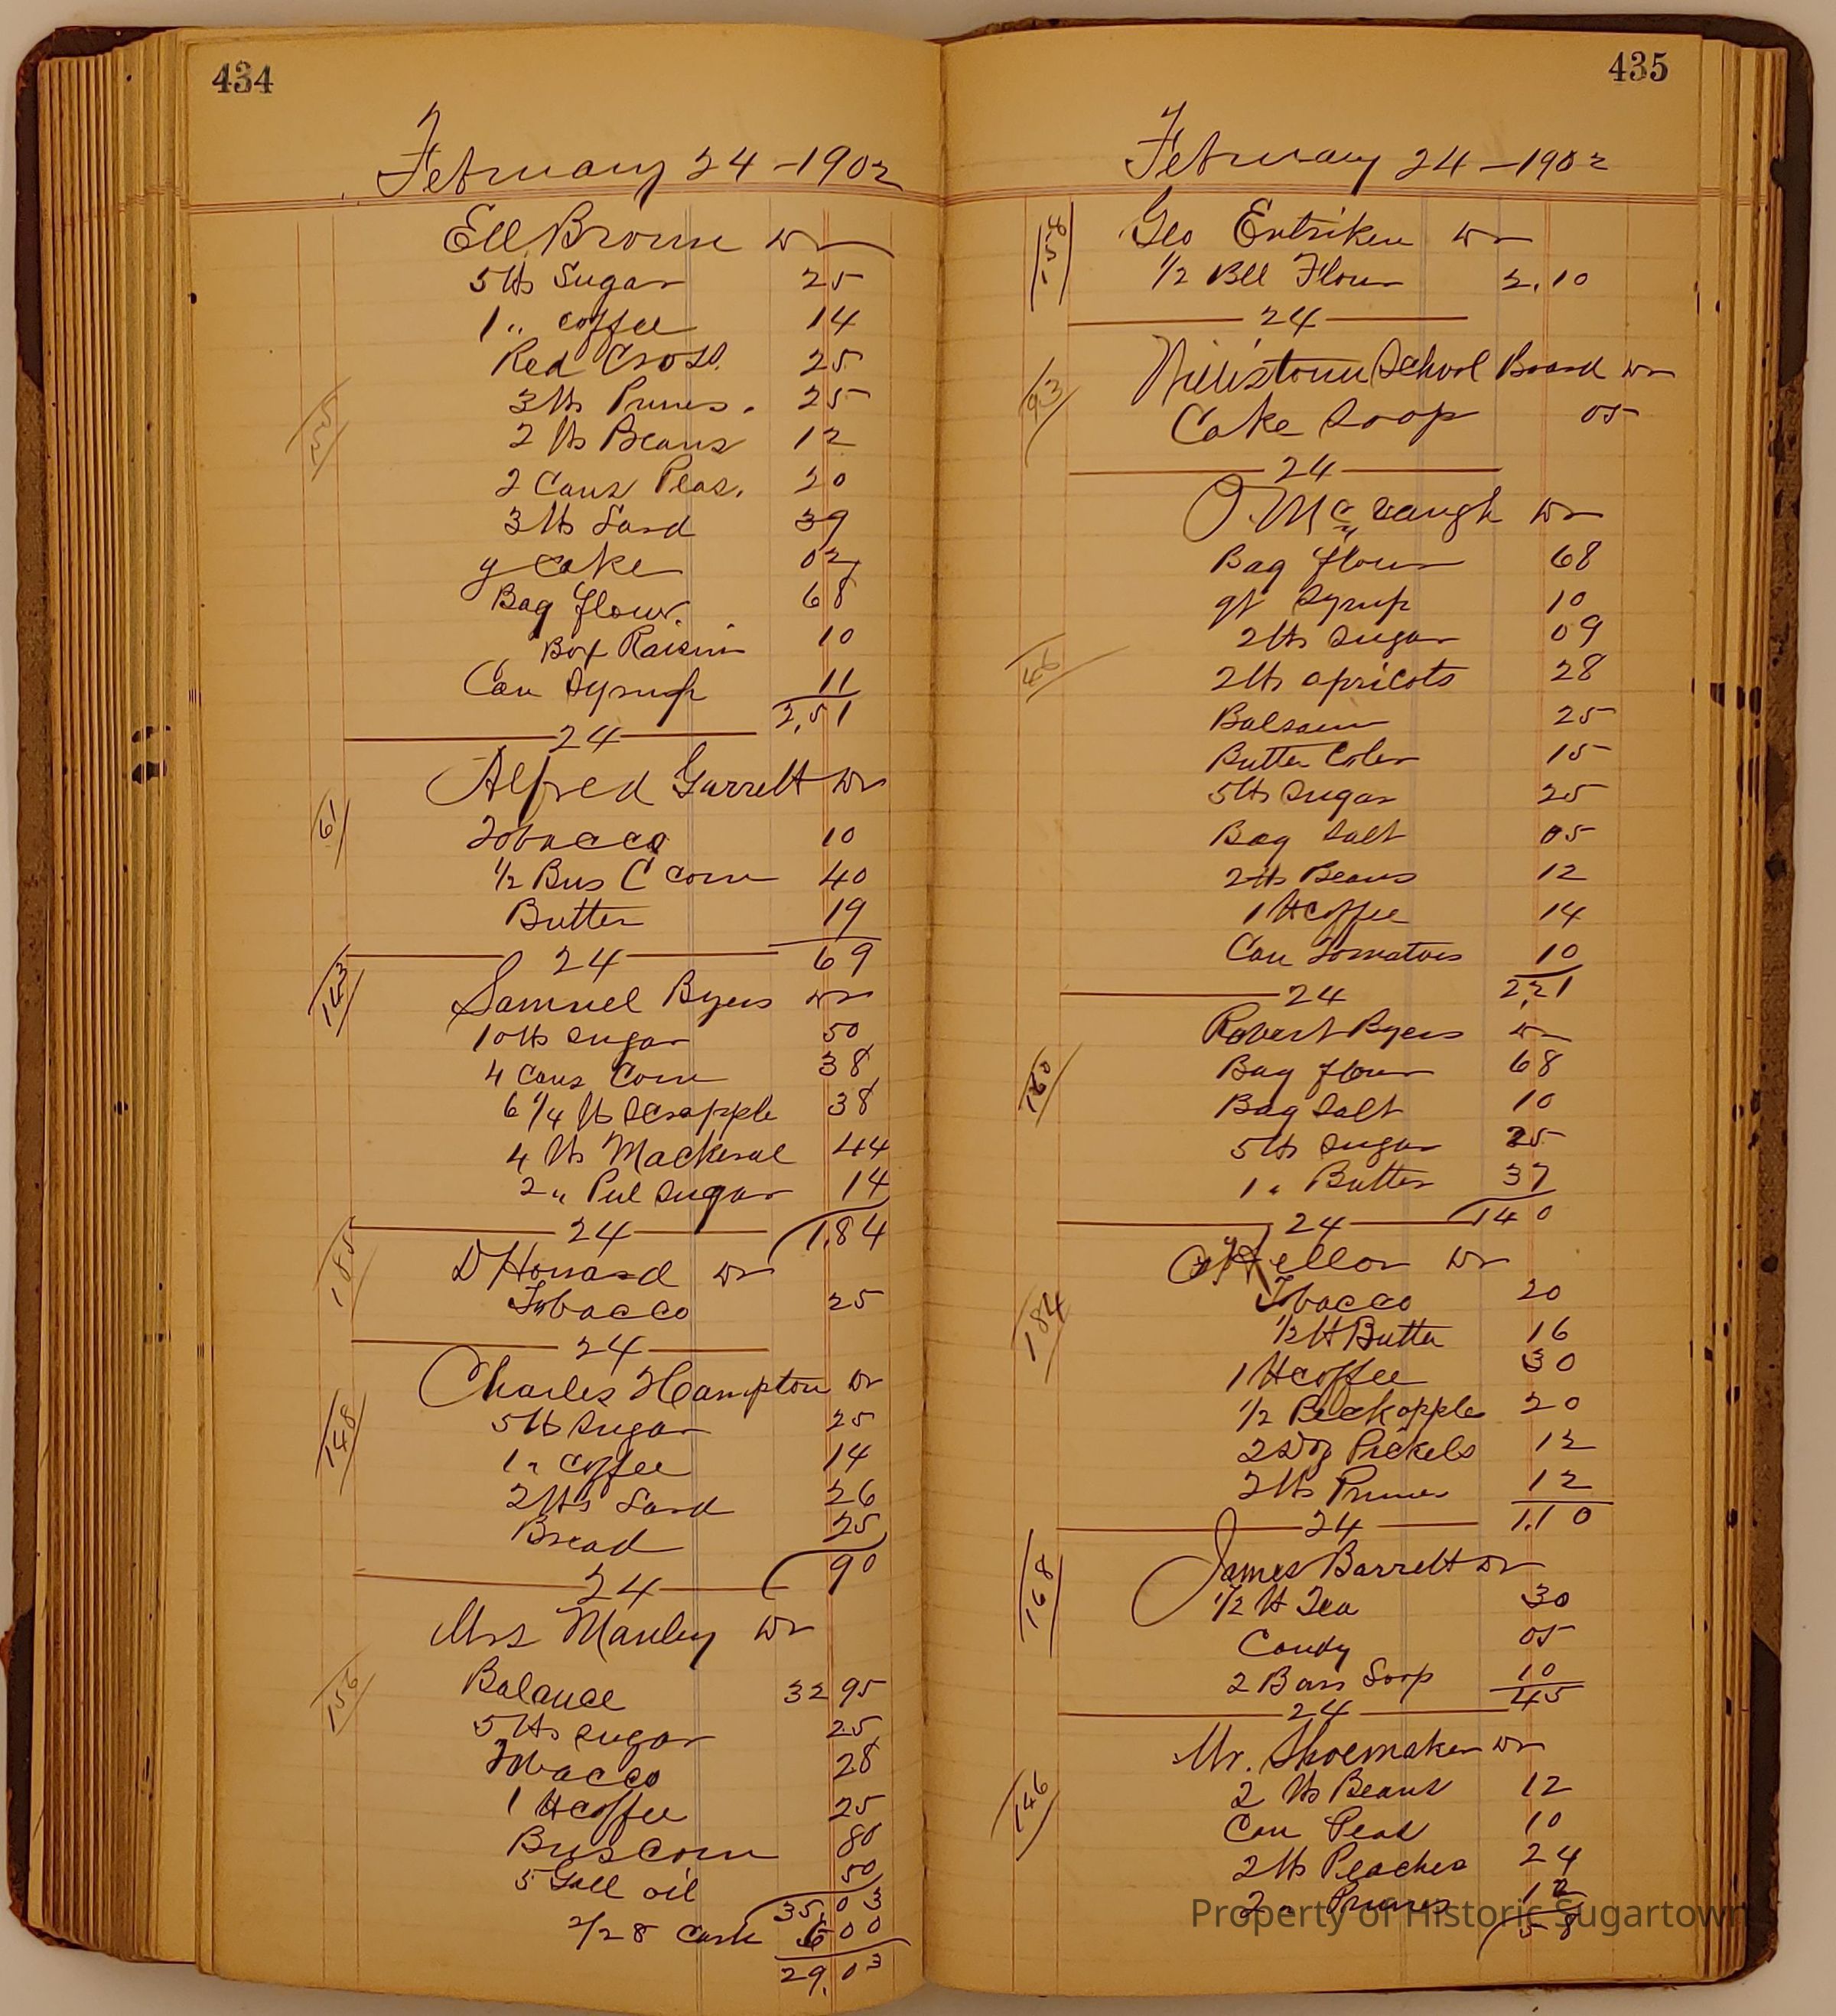 434
February 24 - 1902
Ell Brown Dr
5 lbs Sugar 25
1 " coffee 14
Red Cross. 25
3 lbs Prunes. 25
2 lbs Beans 12
2 Cans Peas. 20
3 lbs Lard 39
y cake 02
Bag flour. 68
Box Raisin 10
Can Syrup 11
2.51
155
24
Alfred Garrett Dr
61
Tobacco 10
1/2 Bus C corn 40
Butter 19
24 69
143
Samuel Byers Dr
10 lbs sugar 50
4 Cans Corn 38
6 1/4 lb Scrapple 38
4 lbs Mackeral 44
2 " Pul Sugar 14
24 1.84
185
D Howard Dr
Tobacco 25
24
Charles Hampton Dr
148
5 lb Sugar 25
1 " coffee 14
2 lbs Lard 26
Bread 25
24 90
Mrs Manley Dr
156
Balance 32 95
5 lbs sugar 25
Tobacco 28
1 lb coffee 25
Bus Corn 80
5 Gall oil 50
35.03
2/28 Cash 6 00
29.03
435
February 24 - 1902
158
Geo Entriken Dr
1/2 Bbl Flour 2.10
24
93
Willistown School Board Dr
Cake Soap 05
24
O. Mc Vaugh Dr
Bag flour 68
qt Syrup 10
2 lbs Sugar 09
46
2 lbs apricots 28
Balsam 25
Butter Coler 15
5 lbs Sugar 25
Bag Salt 05
2 lbs Beans 12
1 lb coffee 14
Can Tomatoes 10
24 2.21
Robert Byers Dr
160
Bag flour 68
Bag Salt 10
5 lbs Sugar 25
1 " Butter 37
24 140
Kellor Dr
184
Tobacco 20
1/2 lb Butter 16
1 lb coffee 30
1/2 Peck apples 20
2 Doz Pickels 12
2 lbs Prunes 12
24 1.10
168
James Barrett Dr
1/2 lb Tea 30
Candy 05
2 Bars Soap 10
24 45
Mr. Shoemaker Dr
146
2 lbs Beans 12
Can Peas 10
2 lbs Peaches 24
2 " Prunes 12
58
Property of Historic Sugartown